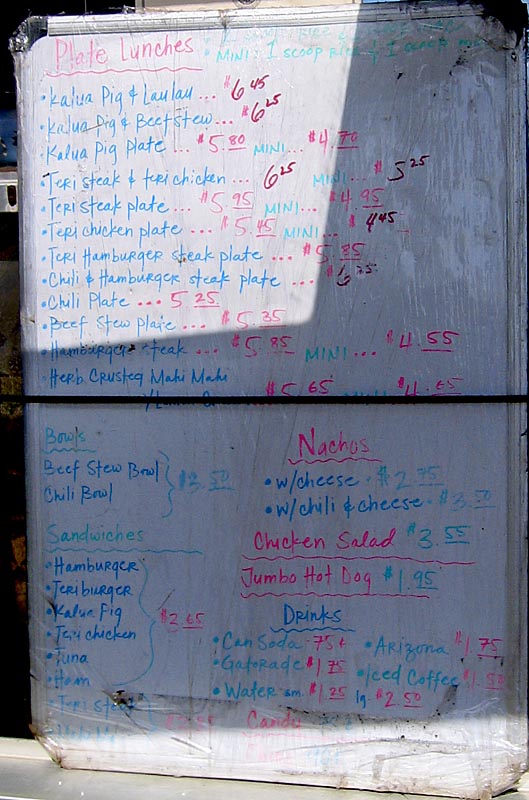 Plate Lunches
• MINI: 1 SCOOP RICE & 1 SCOOP
• Kalua Pig & Laulau ... $6.45
• Kalua Pig & Beef Stew ... $6.25
• Kalua Pig plate ... $5.80 MINI ... $4.70
• Teri steak & teri chicken ... 6.25 MINI ... $5.25
• Teri steak plate ... $5.95 MINI ... $4.95
• Teri chicken plate ... $5.45 MINI ... $4.45
• Teri Hamburger steak plate ... $5.85
• Chili & Hamburger steak plate ... $6.25
• Chili Plate ... 5.25
• Beef Stew Plate ... $5.35
• Hamburger steak ... $5.85 MINI ... $4.55
• Herb Crusted Mahi Mahi
$5.65 $4.65
Bowls
Beef Stew Bowl
Chili Bowl
$3.50
Nachos
• w/cheese • $2.75
• w/chili & cheese • $3.50
Chicken Salad $3.55
Jumbo Hot Dog $1.95
Sandwiches
• Hamburger
• Teriburger
• Kalua Pig
• Teri chicken
• Tuna
• Ham
$2.65
• Teri steak
Drinks
• Can Soda 75¢
• Gatorade $1.75
• Water sm. $1.25 lg. $2.50
• Arizona $1.75
• Iced Coffee $1.50
Candy